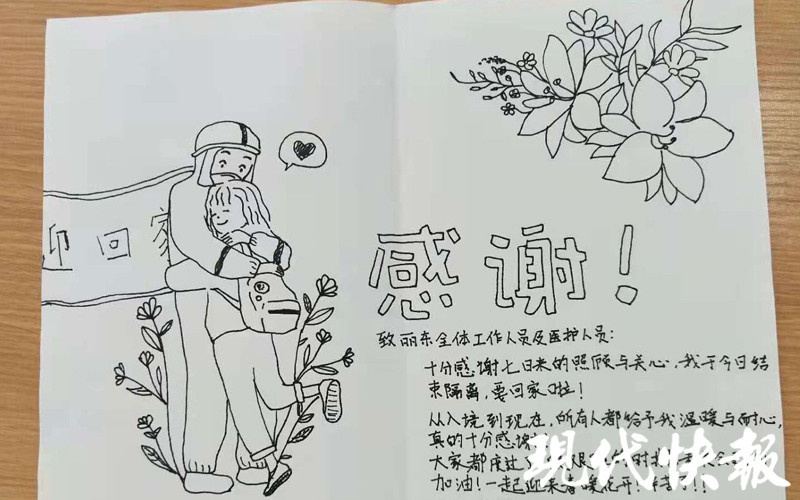 迎回家
感谢！
致丽东全体工作人员及医护人员：
十分感谢七日来的照顾与关心，我于今日结
束隔离，要回家啦！
从入境到现在，所有人都给予我温暖与耐心，
真的十分感谢
大家都度过
加油！一起迎来春暖花开！
现代快报